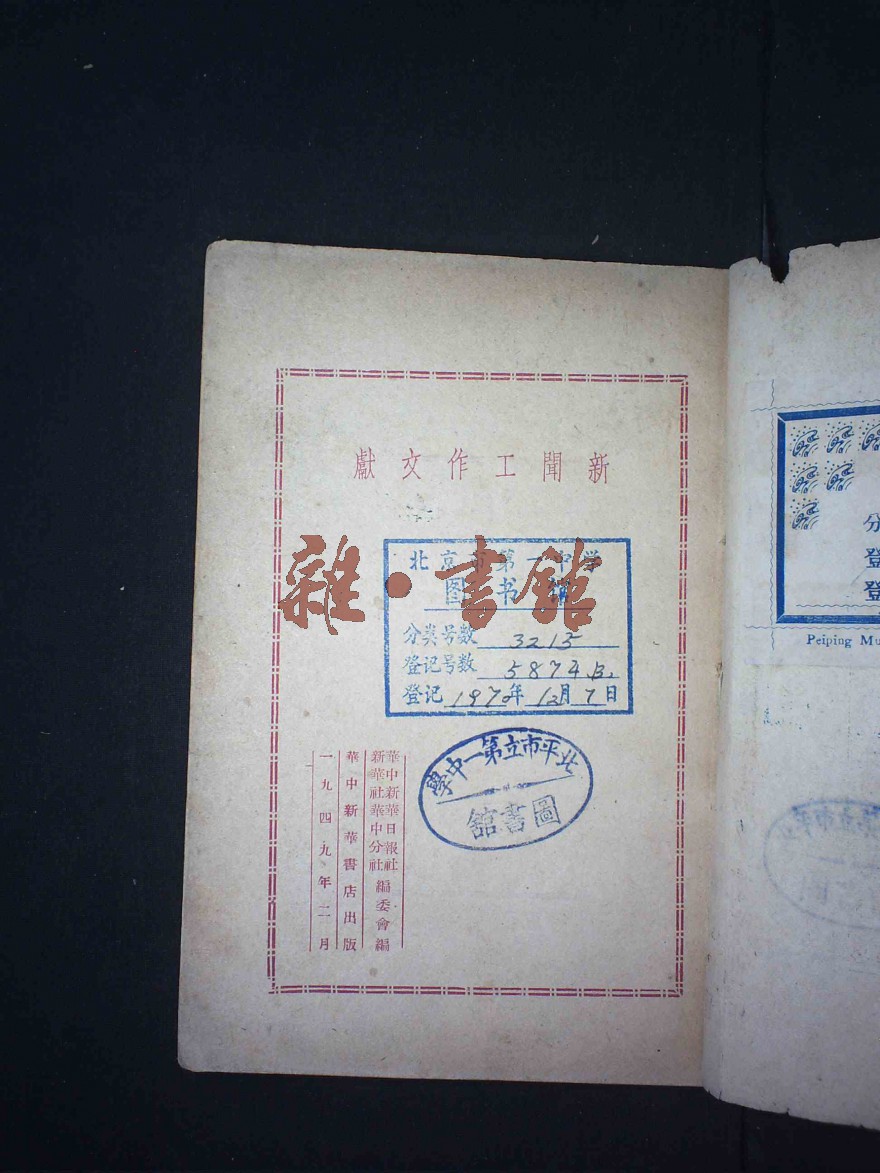 新聞工作文獻
北京市第一中学
图书馆
分类号数 3215
登记号数 5874
登记 197 年 12月7日
雜·書館
北平市立第一中學
圖書館
華中新華日報社
新華社華中分社
編委會編
華中新華書店出版
一九四九年二月
分
登
登
Peiping Mu